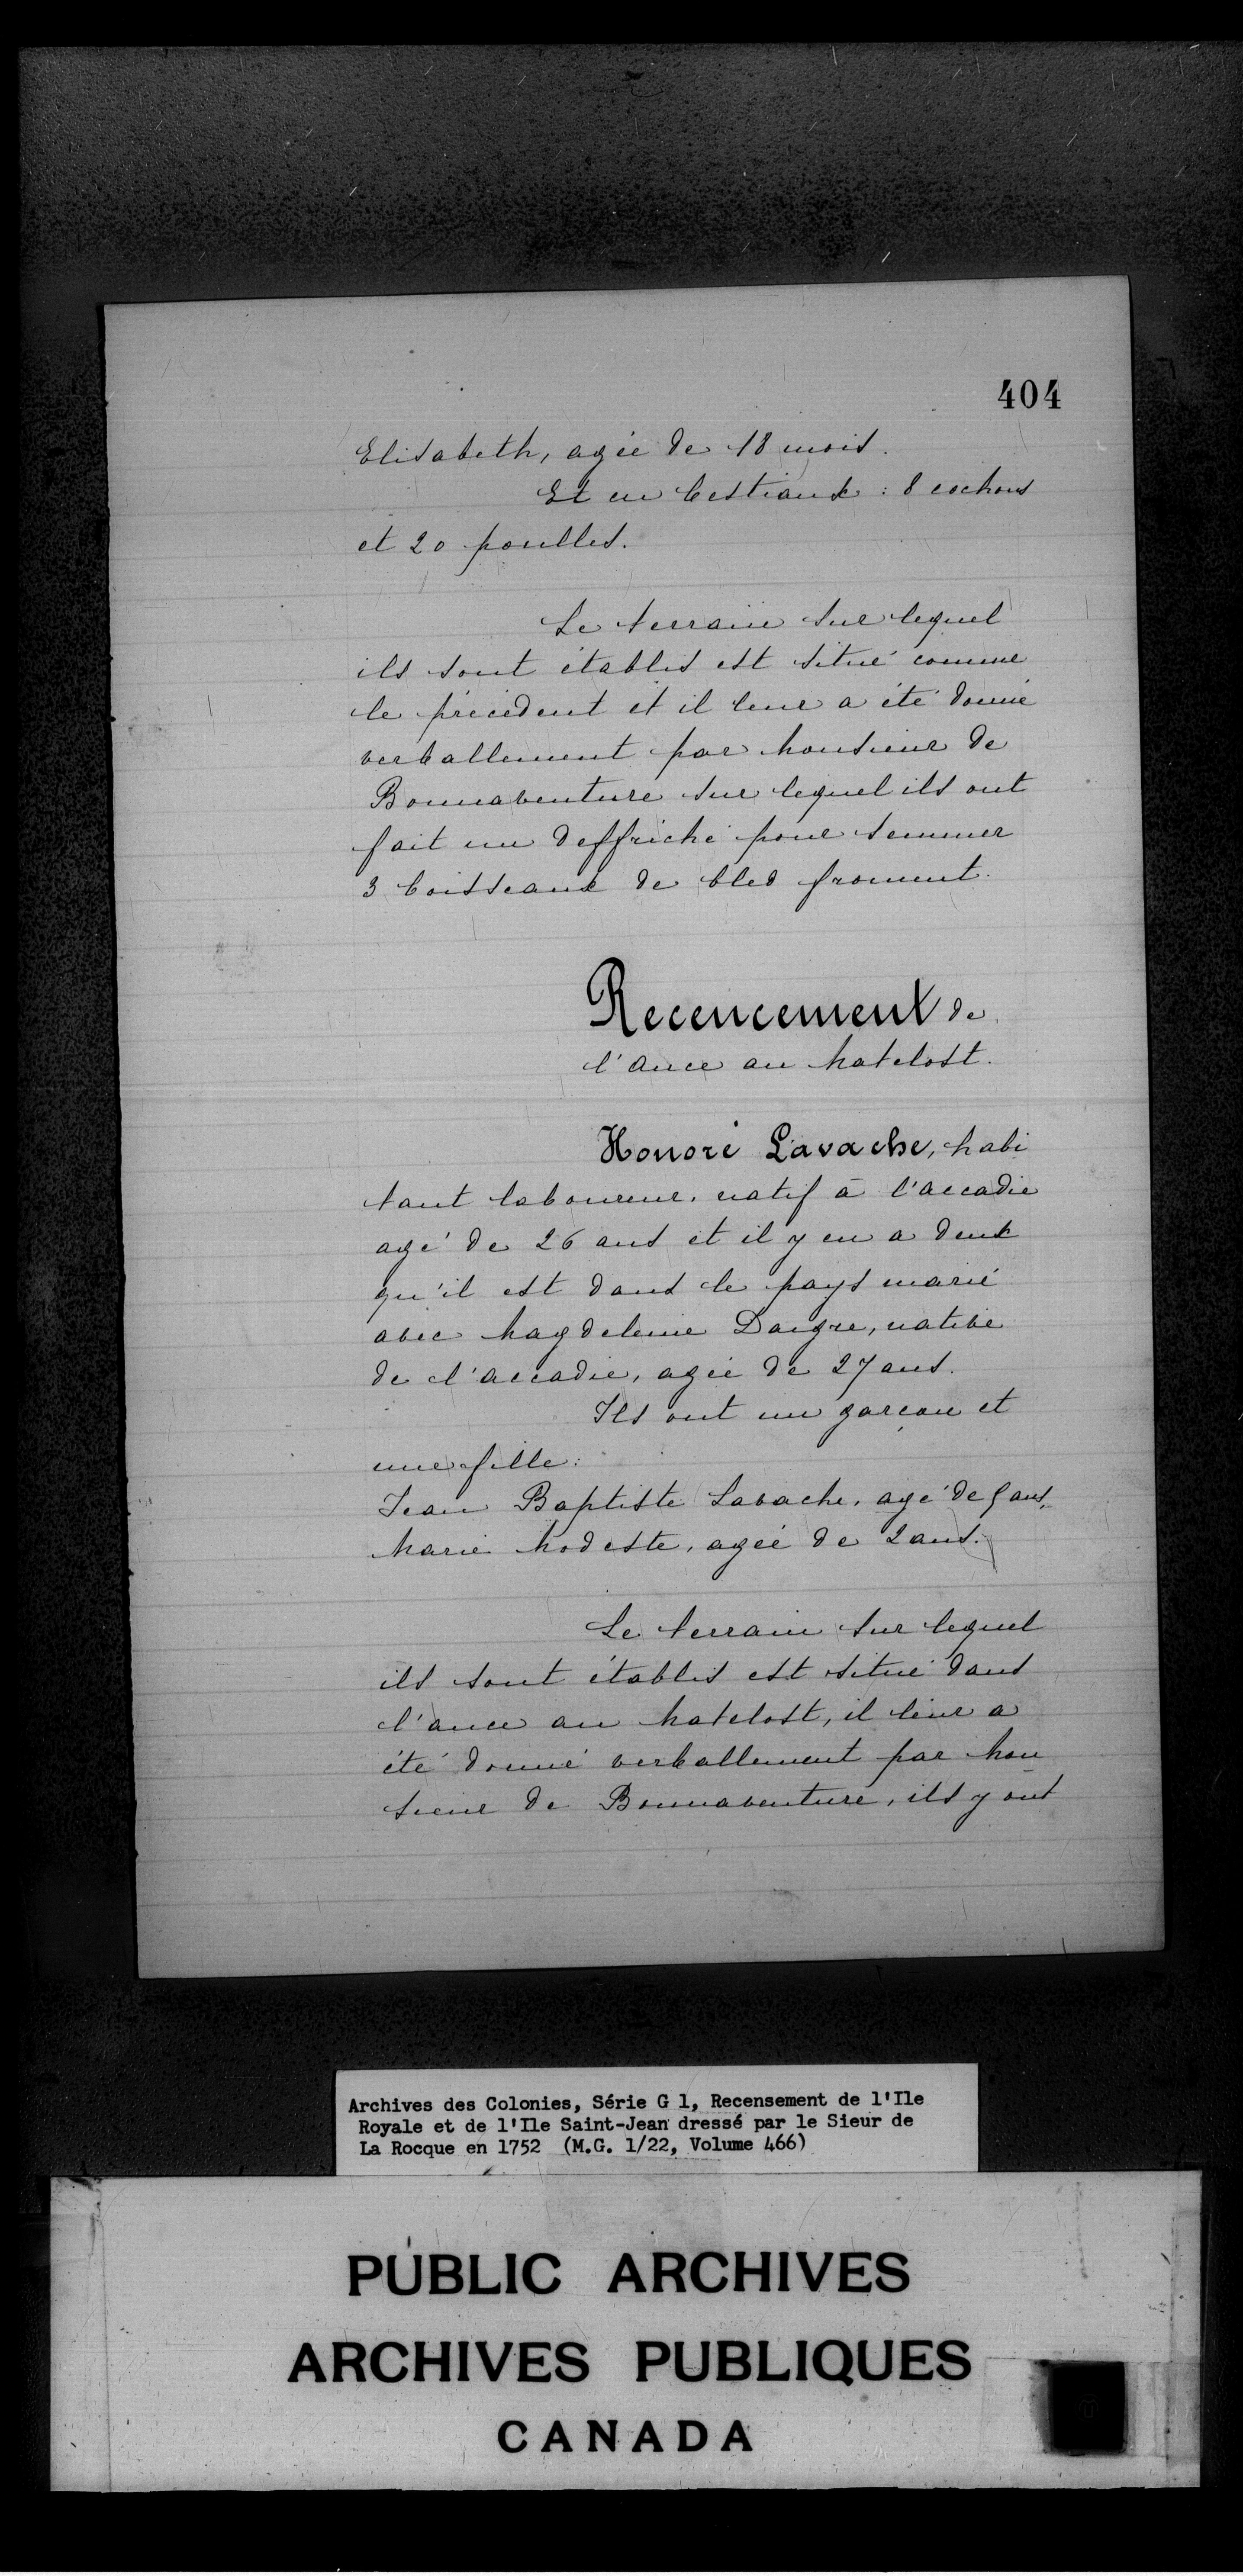 404
Elisabeth, agée de 18 mois.
Et en bestiaux : 8 cochons
et 20 poulles.
Le terrain sur lequel
ils sont établis est situé comme
le précédent et il leur a été donné
verballement par Monsieur de
Bonnaventure sur lequel ils ont
fait un deffriché pour semmer
3 boisseaux de bled froment.
Recencement de
l'ance au Matelost.
Honoré Lavache, habi
tant laboureur, natif à l'accadie
agé de 26 ans et il y en a deux
qu'il est dans le pays marié
avec Magdeleine Daigre, native
de l'accadie, agée de 27 ans.
Ils ont un garçon et
une fille :
Jean Baptiste Lavache, agé de ans,
Marie Modeste, agée de 2 ans.
Le terrain sur lequel
ils sont établis est situé dans
l'ance au Matelost, il leur a
été donné verballement par Mon
sieur de Bonnaventure, ils y ont
Archives des Colonies, Série G 1, Recensement de l'Ile
Royale et de l'Ile Saint-Jean dressé par le Sieur de
La Rocque en 1752 (M.G. 1/22, Volume 466)
PUBLIC ARCHIVES
ARCHIVES PUBLIQUES
CANADA